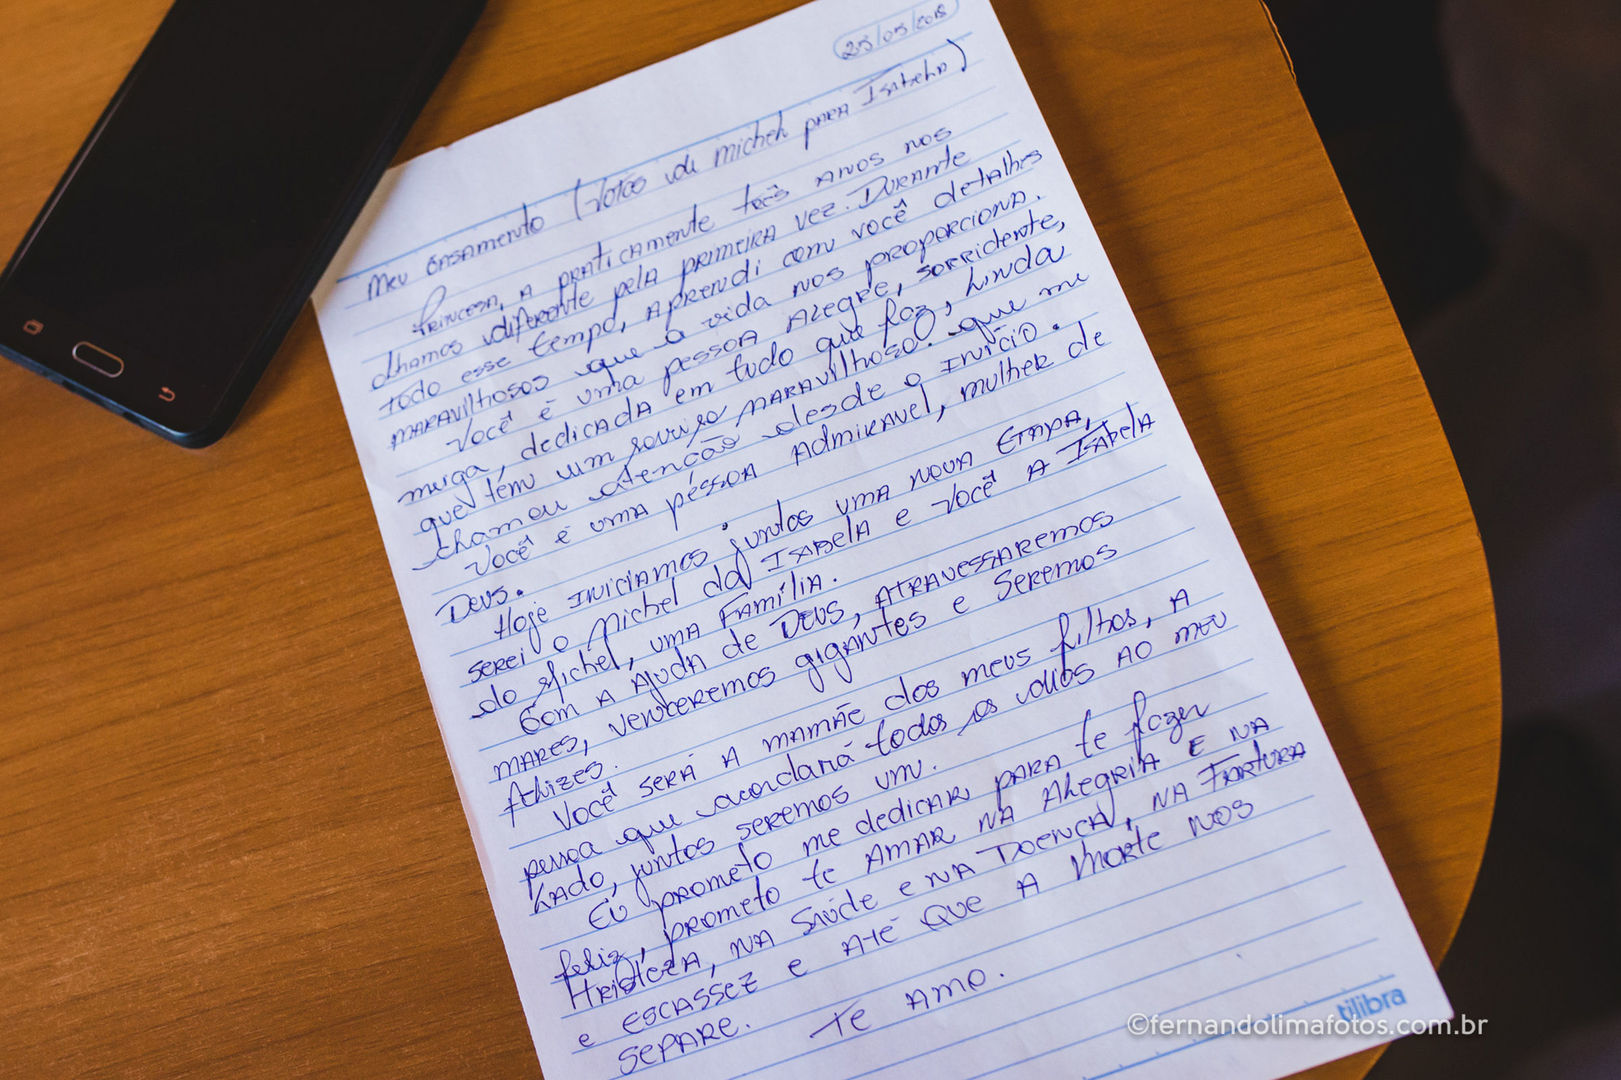 25/05/2018
Meu casamento (Votos de Michel para Isabela)
Princesa, a praticamente três anos nos
olhamos diferente pela primeira vez. Durante
todo esse tempo, aprendi com você detalhes
maravilhosos que a vida nos proporciona.
Você é uma pessoa alegre, sorridente,
meiga, dedicada em tudo que faz, linda
que têm um sorriso maravilhoso que me
chamou atenção desde o início.
Você é uma pessoa admiravel, mulher de
Deus.
Hoje iniciamos juntos uma nova etapa,
serei o Michel da Isabela e você a Isabela
do Michel, uma família.
Com a ajuda de Deus, atravessaremos
mares, venceremos gigantes e seremos
felizes.
Você será a mamãe dos meus filhos, a
pessoa que acordará todos os dias ao meu
lado, juntos seremos um.
Eu prometo me dedicar para te fazer
feliz, prometo te amar na alegria e na
tristeza, na saúde e na doença, na fartura
e escassez e até que a morte nos
separe. Te amo.
tilibra
©fernandolimafotos.com.br